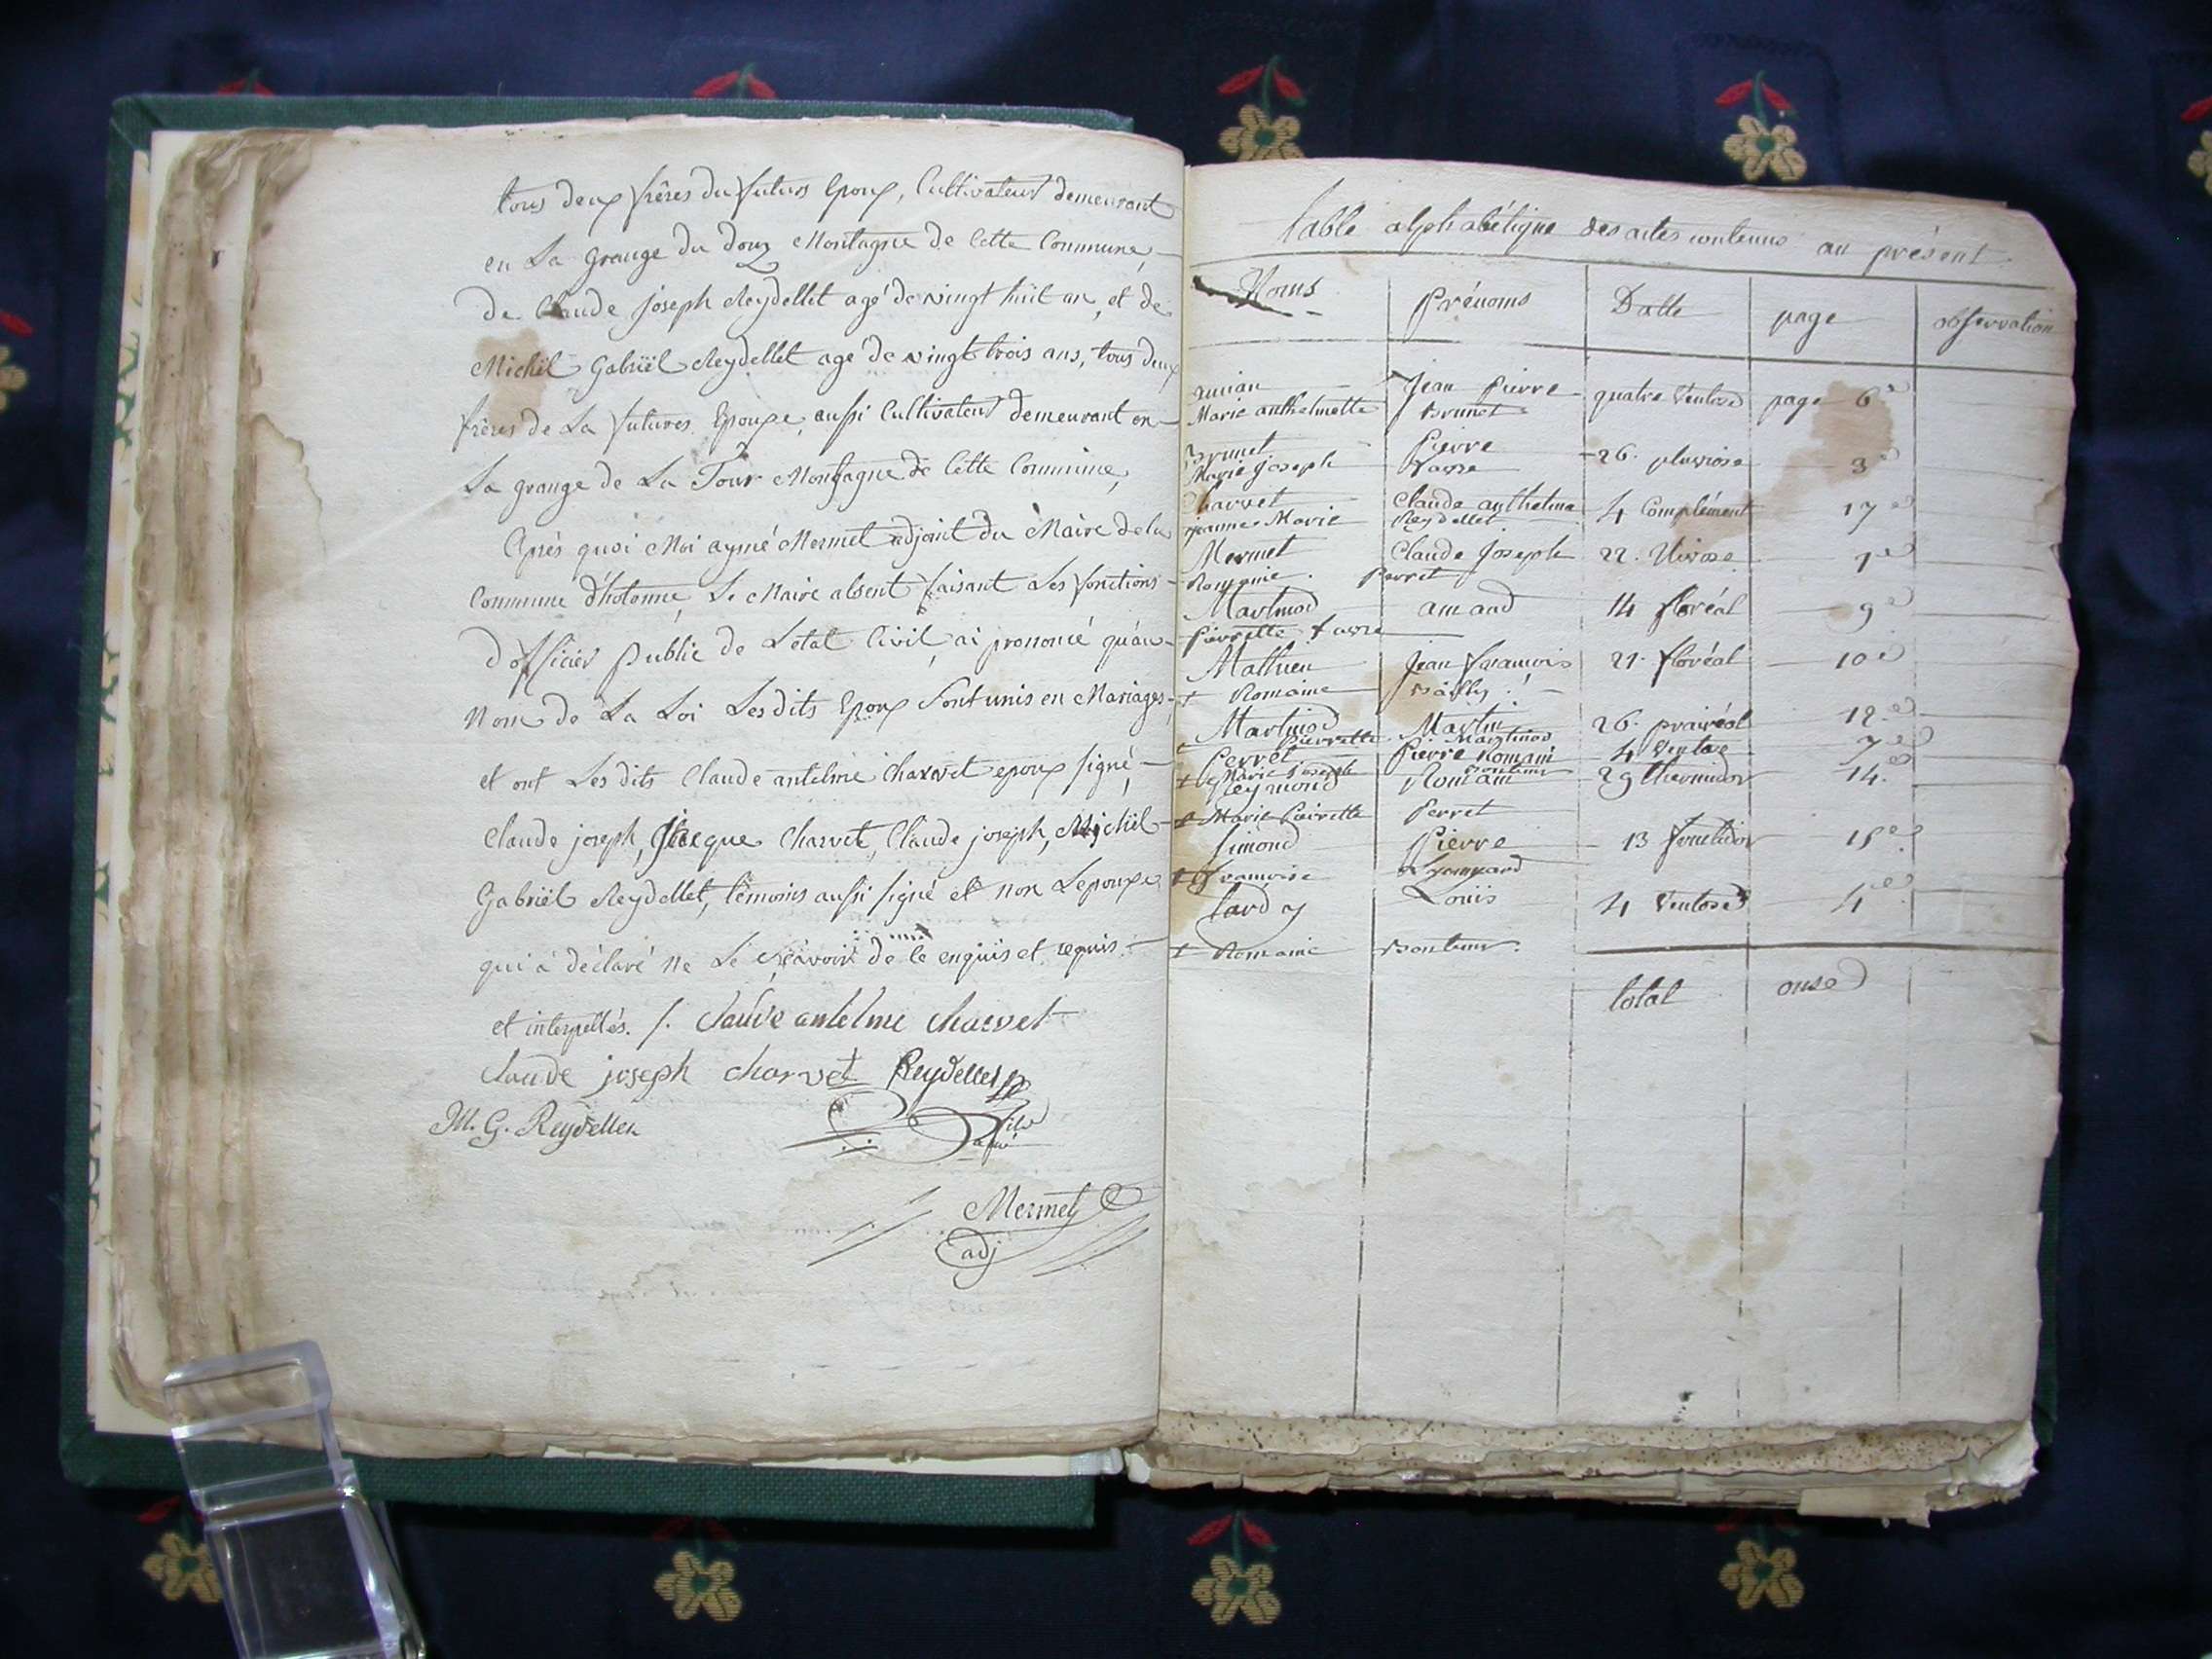 tous deux frères du futurs Epoux, Cultivateurs demeurant
en La grange du Douz Montagne de Cette Commune,
de Claude joseph Reydellet agé de vingt huit an, et de
Michël Gabriël Reydellet agé de vingt trois ans, tous deux
frères de La futures Epouse, aussi Cultivateurs demeurant en
La grange de La Tour Montagne de Cette Commune,
Après quoi Moi aymé Mermet adjoint du Maire de la
Commune d'hotonne, Le Maire absent faisant Les fonctions
d'officier Public de L'etat Civil, ai prononcé qu'au
Nom de La Loi Lesdits Epoux Sont unis en Mariages,
et ont Lesdits Claude antelme Charvet epoux signé
Claude joseph, Jacque Charvet, Claude joseph, Michël
Gabriël Reydellet, témoins aussi signé et non Lepouse
qui à déclaré ne Le Sçavoir de ce enquis et requis
et interpellés. /. Claude antelme Charvet
Claude joseph charvet Reydellet
fils
M. G. Reydellet
Mermet
adj
table alphabétique des actes contenus au présent
Noms Prénoms Datte page observation
Jean Pierre quatre Ventose page 6e
Marie anthelmette Brunet
Brunet Pierre 26. pluviose 3e
Marie Joseph Favre
Charvet Claude anthelme 4 Complément 17e
jeanne Marie Reydellet
Mermet Claude Joseph 22. Nivose 1e
Romaine Perret
Martinod amand 14 floréal 9e
Pierrette favre
Mathieu Jean francois 21. floréal 10e
+ Romaine Bailly
Martinod Martin 26. prairéal 12e
Pierrette Martinod
Perret Pierre Romain 4 Ventose 7e
Marie Joseph Bontems
Reymond Romain 29 thermidor 14e
Marie Pierrette Perret
Simond Pierre 13 fructidor 15e
francoise
tardy Louis 4 Ventose 4e
+ Romaine Bontems
total onse